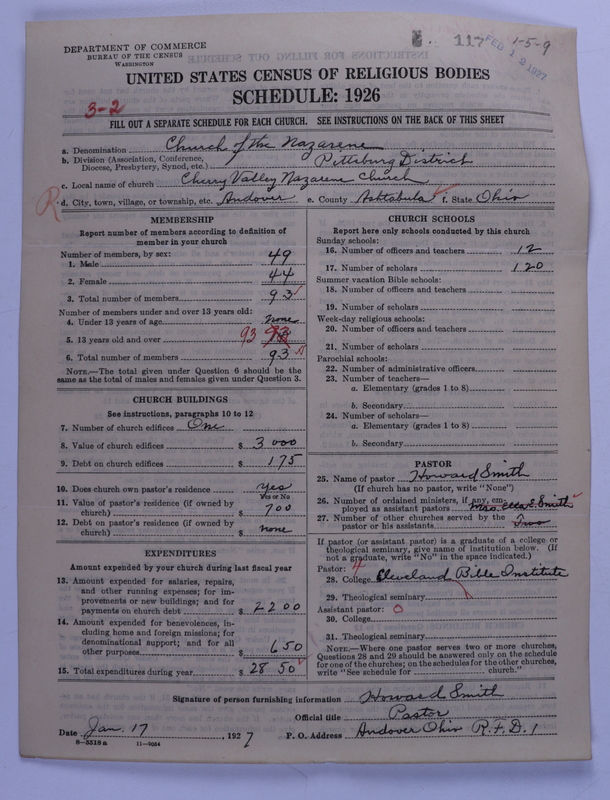 DEPARTMENT OF COMMERCE
BUREAU OF THE CENSUS
WASHINGTON
117
FEB 12 1927
1-5-9
UNITED STATES CENSUS OF RELIGIOUS BODIES
SCHEDULE: 1926
3-2
FILL OUT A SEPARATE SCHEDULE FOR EACH CHURCH. SEE INSTRUCTIONS ON THE BACK OF THIS SHEET
a. Denomination Church of the Nazarene
b. Division (Association, Conference, Diocese, Presbytery, Synod, etc.) Pittsburg District
c. Local name of church Cherry Valley Nazarene Church
R
d. City, town, village, or township, etc. Andover e. County Ashtabula f. State Ohio
MEMBERSHIP
Report number of members according to definition of
member in your church
Number of members, by sex:
1. Male 49
2. Female 44
3. Total number of members 93
Number of members under and over 13 years old:
4. Under 13 years of age none
5. 13 years old and over 93
6. Total number of members 93
NOTE.—The total given under Question 6 should be the
same as the total of males and females given under Question 3.
CHURCH BUILDINGS
See instructions, paragraphs 10 to 12
7. Number of church edifices One
8. Value of church edifices $ 3000
9. Debt on church edifices $ 175
10. Does church own pastor's residence yes
Yes or No
11. Value of pastor's residence (if owned by
church) $ 700
12. Debt on pastor's residence (if owned by
church) $ none
EXPENDITURES
Amount expended by your church during last fiscal year
13. Amount expended for salaries, repairs,
and other running expenses; for im-
provements or new buildings; and for
payments on church debt $ 2200
14. Amount expended for benevolences, in-
cluding home and foreign missions; for
denominational support; and for all
other purposes $ 650
15. Total expenditures during year $ 2850
CHURCH SCHOOLS
Report here only schools conducted by this church
Sunday schools:
16. Number of officers and teachers 12
17. Number of scholars 120
Summer vacation Bible schools:
18. Number of officers and teachers
19. Number of scholars
Week-day religious schools:
20. Number of officers and teachers
21. Number of scholars
Parochial schools:
22. Number of administrative officers
23. Number of teachers—
a. Elementary (grades 1 to 8)
b. Secondary
24. Number of scholars—
a. Elementary (grades 1 to 8)
b. Secondary
PASTOR
25. Name of pastor Howard Smith
(If church has no pastor, write "None")
26. Number of ordained ministers, if any, em-
ployed as assistant pastors Mrs. Ella E. Smith
27. Number of other churches served by the
pastor or his assistants Two
If pastor (or assistant pastor) is a graduate of a college or
theological seminary, give name of institution below. (If
not a graduate, write "No" in the space indicated.)
Pastor: 4
28. College Cleveland Bible Institute
29. Theological seminary
Assistant pastor: 0
30. College
31. Theological seminary
NOTE.—Where one pastor serves two or more churches,
Questions 28 and 29 should be answered only on the schedule
for one of the churches; on the schedules for the other churches,
write "See schedule for church."
Signature of person furnishing information Howard Smith
Official title Pastor
Date Jan. 17, 1927 P. O. Address Andover Ohio R.F.D. 1
8-5518a 11-9054